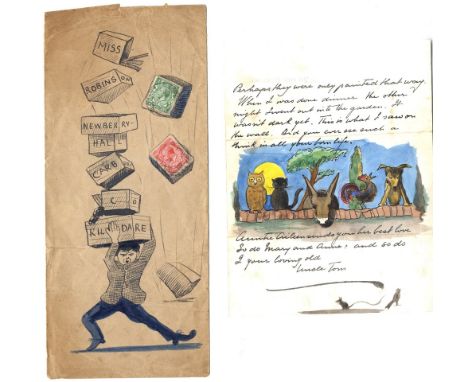 MISS
ROBINSON
NEWBERRY-
HALL
CARB
C O
KILDARE
Perhaps they were only painted that way.
When I was done dinner the other
night I went out into the garden. It
wasn't dark yet. This is what I saw on
the wall. Did you ever see such a
think in all your born life.
Auntie sends you her best love
So do Mary and Annie, and so do
I your loving old
Uncle Tom